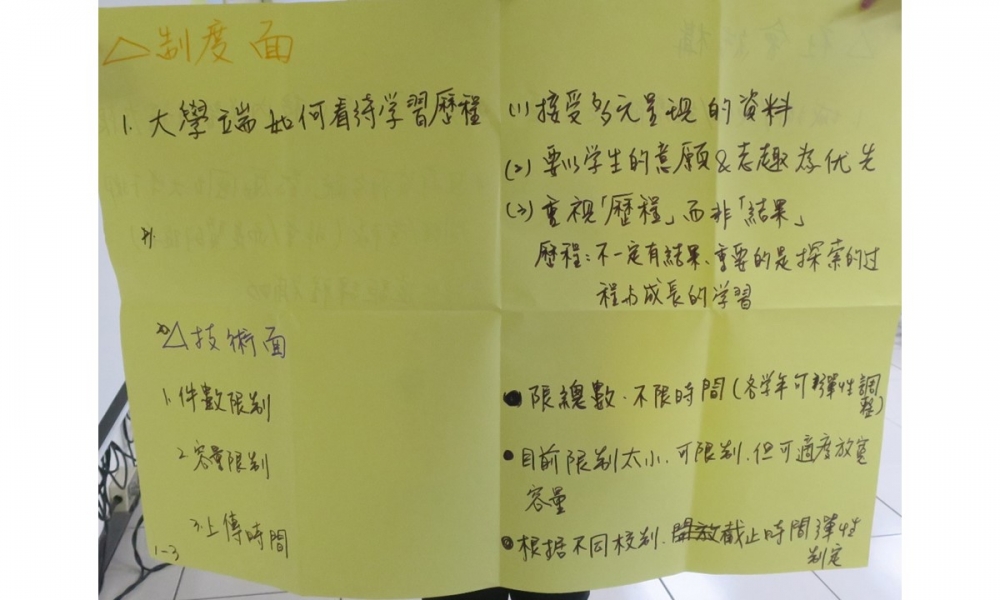 △制度面
1. 大學端如何看待学習歷程
(1)接受多元呈現的資料
(2)要以学生的意願&志趣為优先
(3)重視「歷程」而非「結果」
歷程:不一定有結果、重要的是探索的过
程与成長的学習
△技術面
1.件數限制
●限總數.不限時間(各学年可彈性調
整)
2容量限制
●目前限制太小.可限制.但可適度放寬
容量
3.上傳時間
●根据不同校制.開放截止時間彈性
制定
1-3